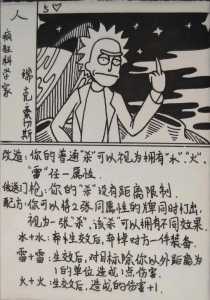 人
5♡
疯狂科学家
瑞克桑切斯
改造：你的普通“杀”可以视为拥有“水”“火”，
“雷”任一属性。
传送门枪：你的“杀”没有距离限制。
配方：你可以将2张同属性的牌同时打出，
视为一张“杀”，该杀可以拥有不同效果
水+水：若性效后，弃掉对方一件装备。
雷+雷：生效后，对目标除你以外距离为
1的单位造成1点伤害.
火+火：生效后，造成的伤害+1.